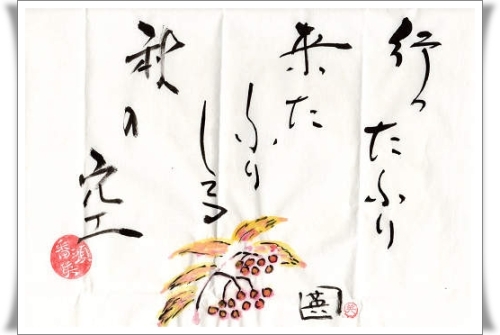 行ったふり
来た
ふり
しる
秋の
空
英